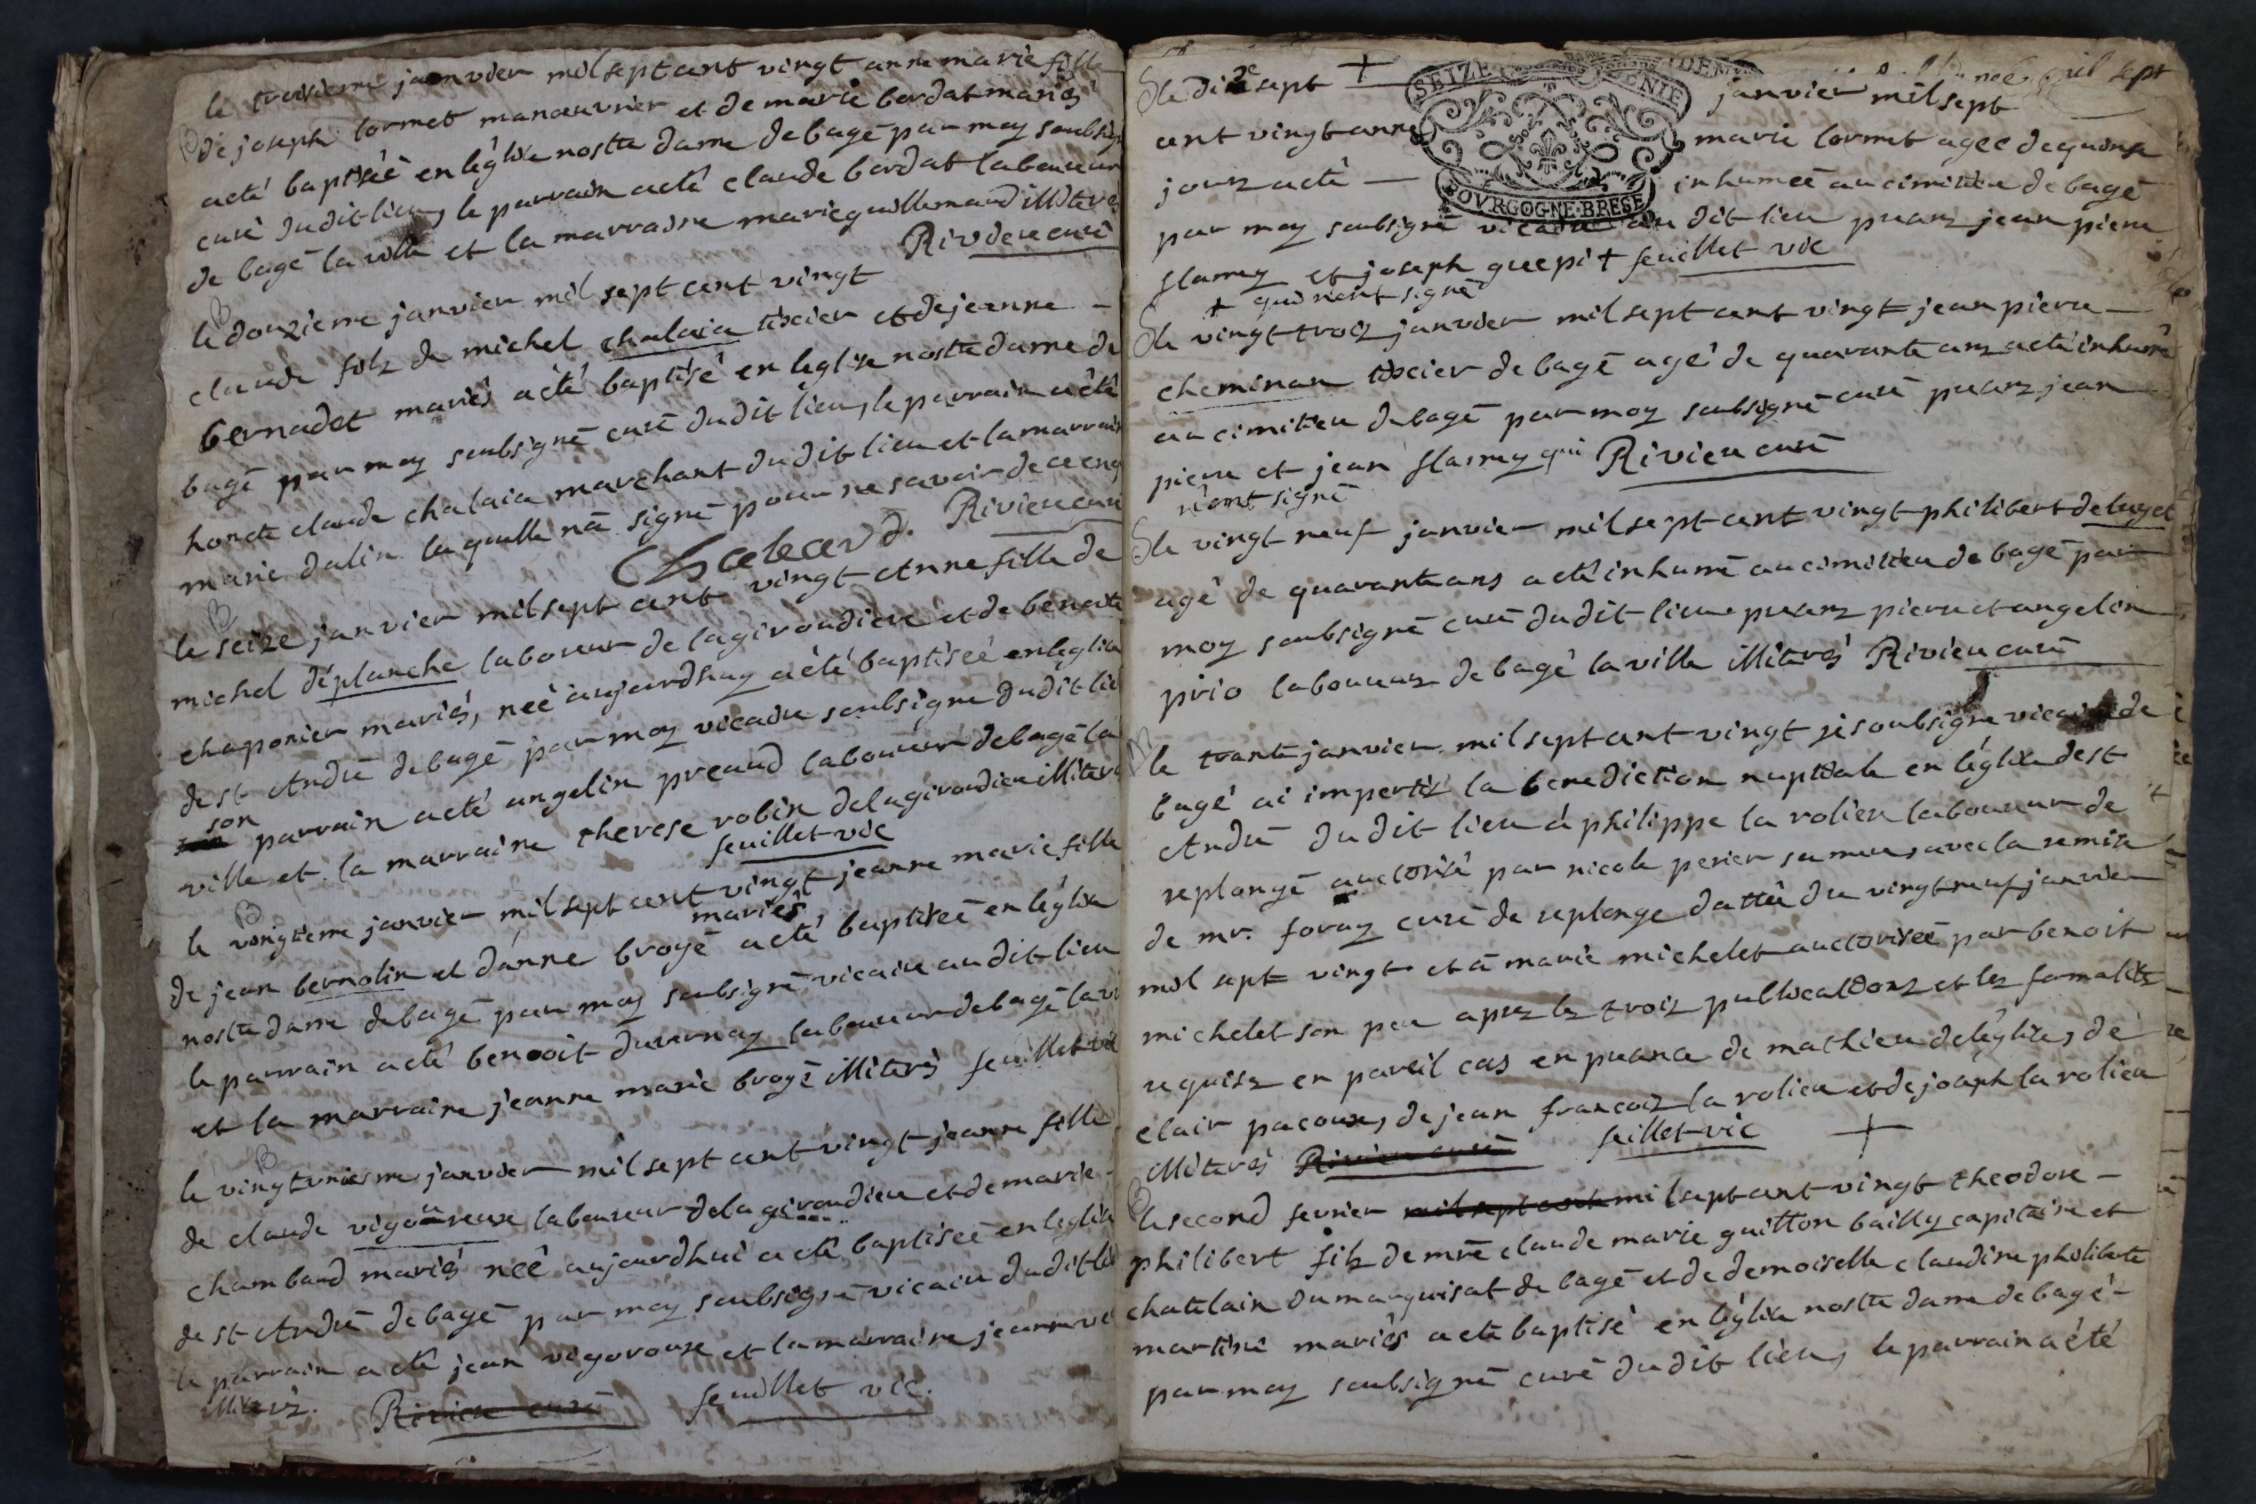 le troisieme janvier mil sept cent vingt anne marie fille
de joseph cormet manœuvrier et de marie bordat mariés
a eté baptiseé en léglise nostre dame de bagé par moy soubsig
curé du dit lieu, le parrain a eté claude bordat laboureur
de bagé la ville et la marraine marie guillemaud illiteres
Riviere curé
B
le douzieme janvier mil sept cent vingt
claude filz de michel chalaia tixier et de jeanne
bernadet mariés a eté baptisé en leglise nostre dame de
bagé par moy soubsigné curé du dit lieu, le parrain a eté
honete claude chalaia marchant du dit lieu et la marraine
marie dalin laquelle na signé pour ne savoir de ce enq
Chaleard. Riviere curé
B
le seize janvier mil sept cent vingt Anne fille de
michel déplanche laboureur de la giroudiere et de benoite
chaponier mariés, neé aujourdhuy a eté baptiseé en leglise
de st André de bagé par moy vicaire soubsigné du dit lieu
son
parrain a eté angelin preaud laboureur de bagé la
ville et la marraine therese robin de la giroudiere illitere
feuillet vic
B
le vingtieme janvier mil sept cent vingt jeanne marie fille
mariés
de jean bernolin et danne brogé a eté baptiseé en léglise
nostre dame de bagé par moy soubsigné vicaire au dit lieu
le parrain a eté benoit duvernay laboureur de bagé la vi
et la marraine jeanne marie brogé illiterés feuillet vic
B
le vingtuniesme janvier mil sept cent vingt jeanne fille
de claude vigoureux laboureur de la giroudiere et de marie
chambard mariés neé aujourdhui a eté baptiseé en leglise
de st André de bagé par moy soubsigné vicaire du dit lie
le parrain a eté jean vigoroux et la marraine jeanne
illiterés. Riviere curé feuillet vic.
S le dixsept + janvier mil sept
SEIZE BOVRGOGNE·BRESE
cent vingt anne marie cormet ageé de quinze
jours a eté — inhumeé au cimitiere de bagé
par moy soubsigné vicaire au dit lieu presens jean pierre
flamy et joseph guepi + feuillet vic
+ qui n'ont signé
S le vingt trois janvier mil sept cent vingt jean pierre
cheminan tixier de bagé agé de quarante ans a eté inhumé
au cimitiere de bagé par moy soubsigné curé presens jean
pierre et jean flamy qui Riviere curé
n'ont signé
S le vingt neuf janvier mil sept cent vingt philibert deluget
agé de quarante ans a eté inhumé au cimitiere de bagé par
moy soubsigné curé du dit lieu presens pierre et angelin
prio laboureurs de bagé la ville illiterés Riviere curé
M
le trante janvier mil sept cent vingt je soubsigné vicaire de
bagé ai imparti la benediction nuptiale en léglise de st
André du dit lieu à philippe la roliere laboureur de
replongé auctorisé par nicole perier sa mere, avec la remise
de mr. foray curé de replonge dattée du vingt neuf janvier
mil sept vingt et a marie michelet auctoriseé par benoit
michelet son pere apres les trois publications et les formalités
requises en pareil cas en presence de mathieu deléglise, de
clair pacoux, de jean francois la roliere et de joseph la roliere
illiterés Riviere curé feuillet vic +
B
le second fevrier mil sept cent mil sept cent vingt theodore
philibert filz de mre claude marie guitton bailly capitaine et
chatelain du marquisat de bagé et de demoiselle claudine philiberte
martine mariés a eté baptisé en léglise nostre dame de bagé
par moy soubsigné curé du dit lieu, le parrain a été